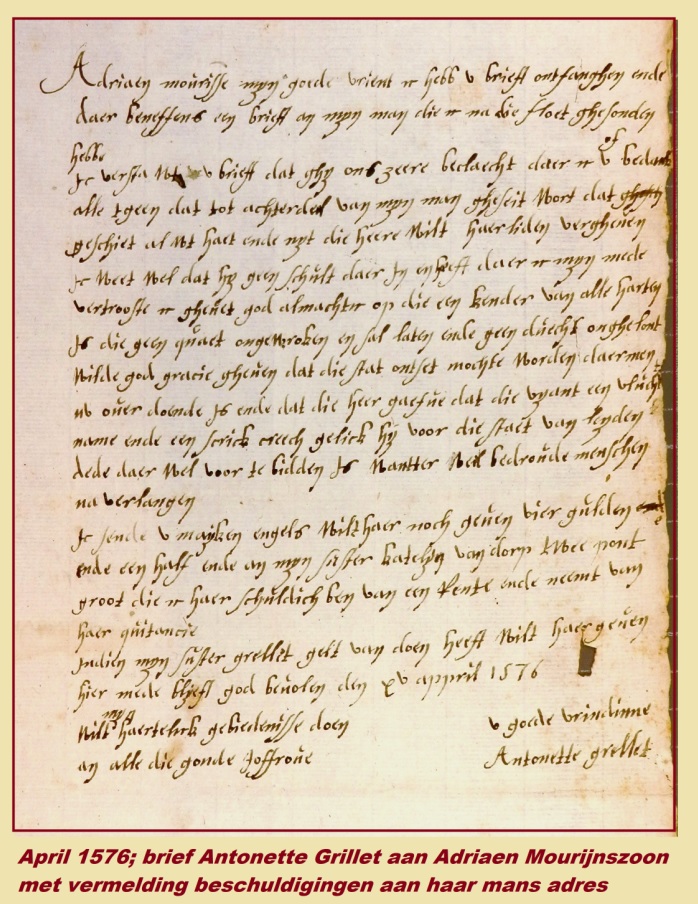 Adriaen mourisse myn goede vrient ic hebb v brieff ontfanghen ende
daer beneffens een brieff an myn man die ic na die floet ghesonden
hebbe
Ic versta wt v brieff dat ghy ons zeere beclaecht daer ic v of bedanke
alle tgeen dat tot achterdel van myn man gheseit wort dat
geschiet al wt haet ende nyt die heere wilt haerliden vergheuen
Ic weet wel dat hy geen schult daer in en heeft daer ic myn mede
vertrooste ic gheuet god almachtic op die een kender van alle harten
Is die geen quaet ongewroken en sal laten ende geen duecht onghelont
wilde god gracie gheuen dat die stat ontset mochte worden daermen
nv ouer doende is ende dat die heer gaefue dat die vyant een vlucht
name ende een scrick creech gelick hy voor die staet van leyden
dede daer wel voor te bidden is wantter veel bedroude menschen
na verlangen
Ic sende v mayken engels wilt haer noch geuen vier gulden
ende een half ende an myn suster katelyn van dorp twee pont
groot die ic haer schuldich ben van een rente ende neemt van
haer quitancie
Indien myn suster grellet gelt van doen heeft wilt haer geuen
hier mede blyeft god beuolen den xv appril 1576
wilt myn haertelick gebiedenisse doen
an alle die gonde Joffroue
v goede vrindinne
Antonette grellet
April 1576; brief Antonette Grillet aan Adriaen Mourijnszoon
met vermelding beschuldigingen aan haar mans adres